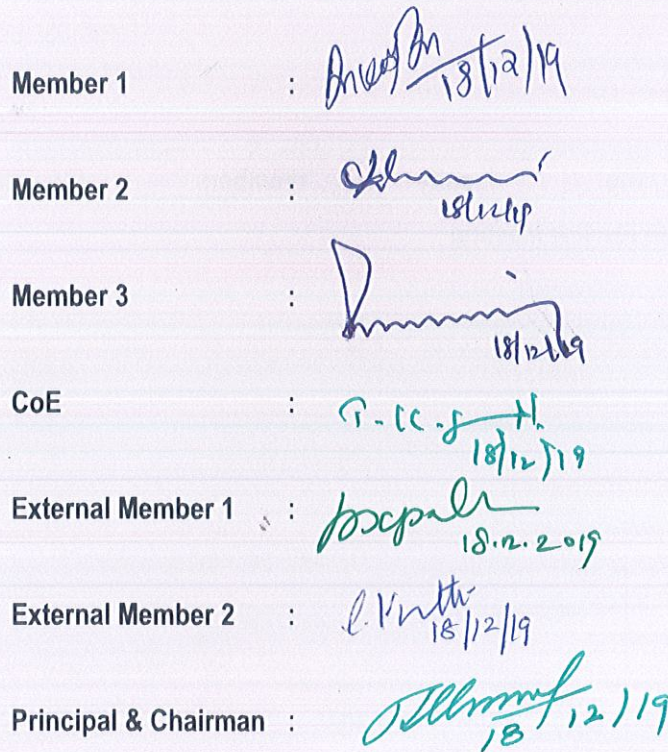 Member 1 : 18/12/19
Member 2 : 18/12/19
Member 3 : 18/12/19
CoE : 18/12/19
External Member 1 : 18.12.2019
External Member 2 : 18/12/19
Principal & Chairman : 18/12/19